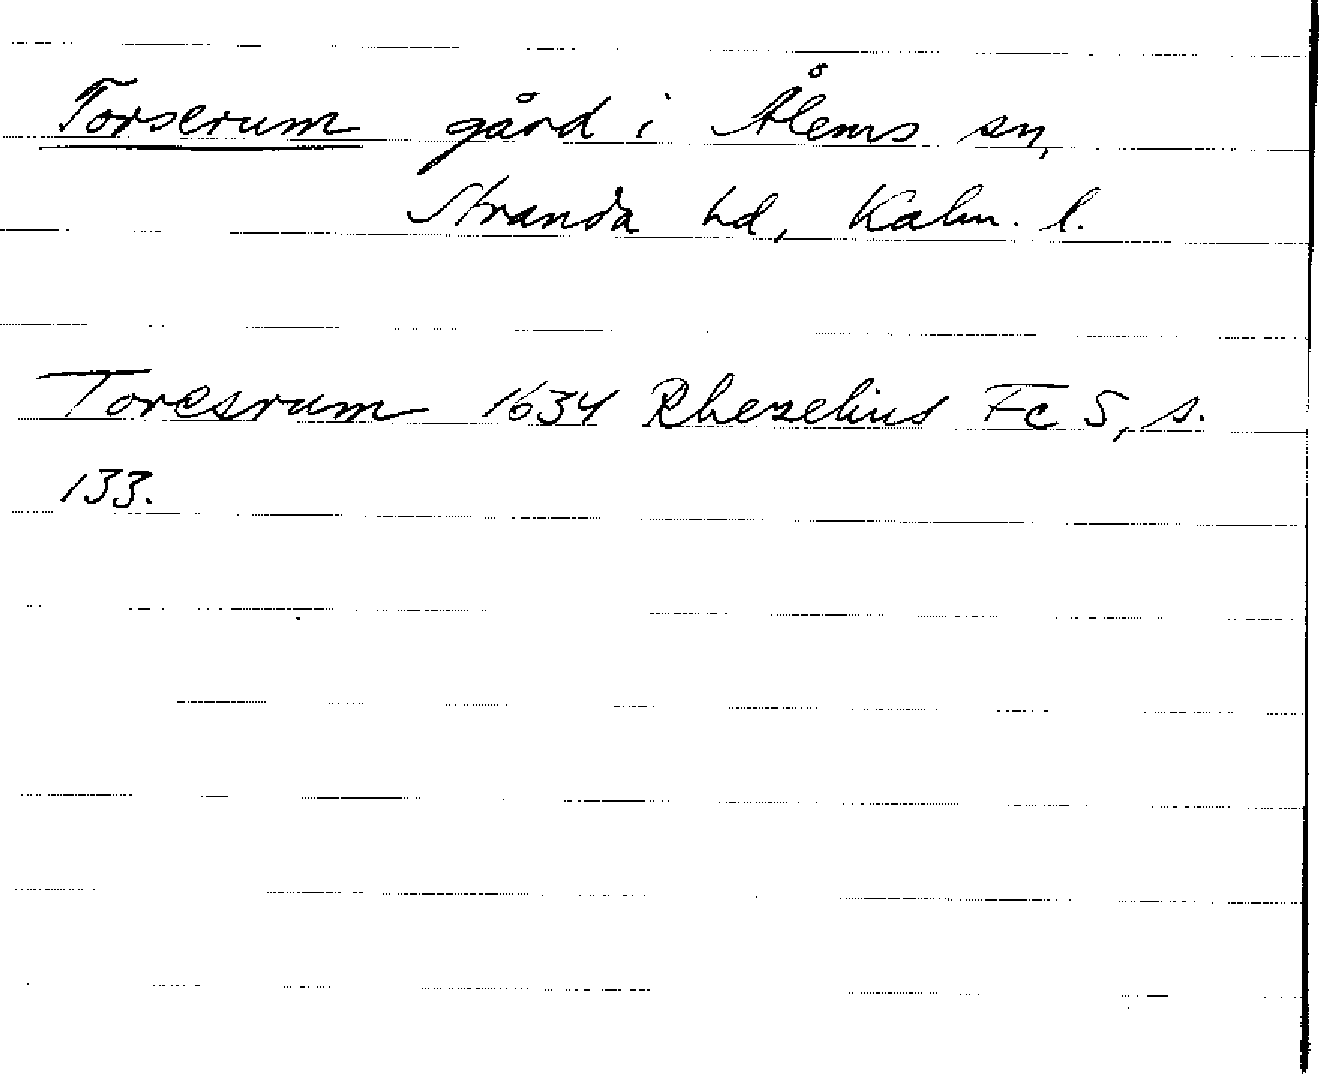 Torserum gård i Ålems sn,
Stranda hd, Kalm. l.
Toresrum 1634 Rhezelius Fc 5, s.
133.